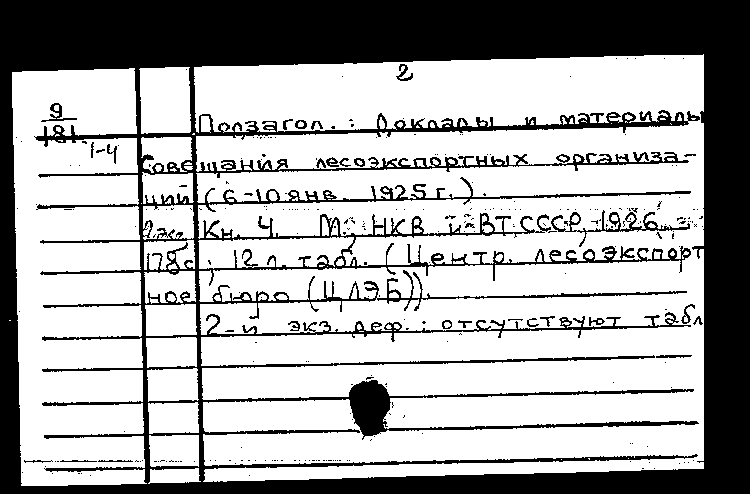 2
9
181
1-4
Подзагол.: Доклады и материалы
Совещания лесоэкспортных организа-
ций (6-10 янв. 1925 г.).
2 экз. Кн. 4. М., НКВ и ВТ СССР, 1926.
178 с; 12 л. табл. (Центр. лесоэкспорт
ное бюро (ЦЛЭБ)).
2-й экз. деф.: отсутствуют табл